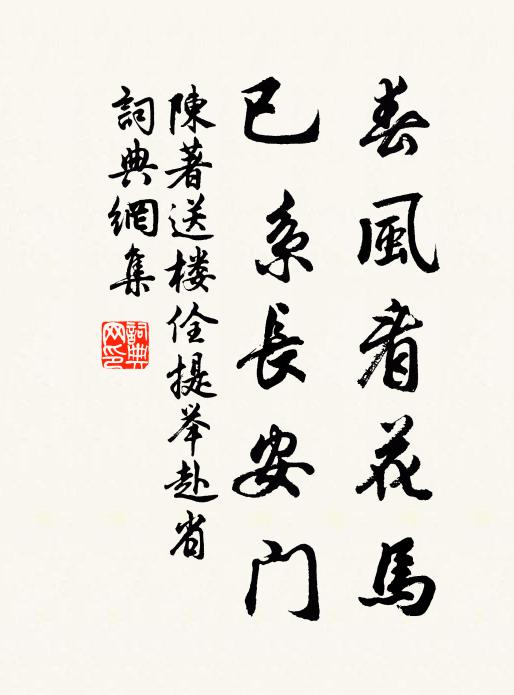 春風看花馬
已系長安门
陳著送楼佺提举赴省
詞典網集
詞典网印